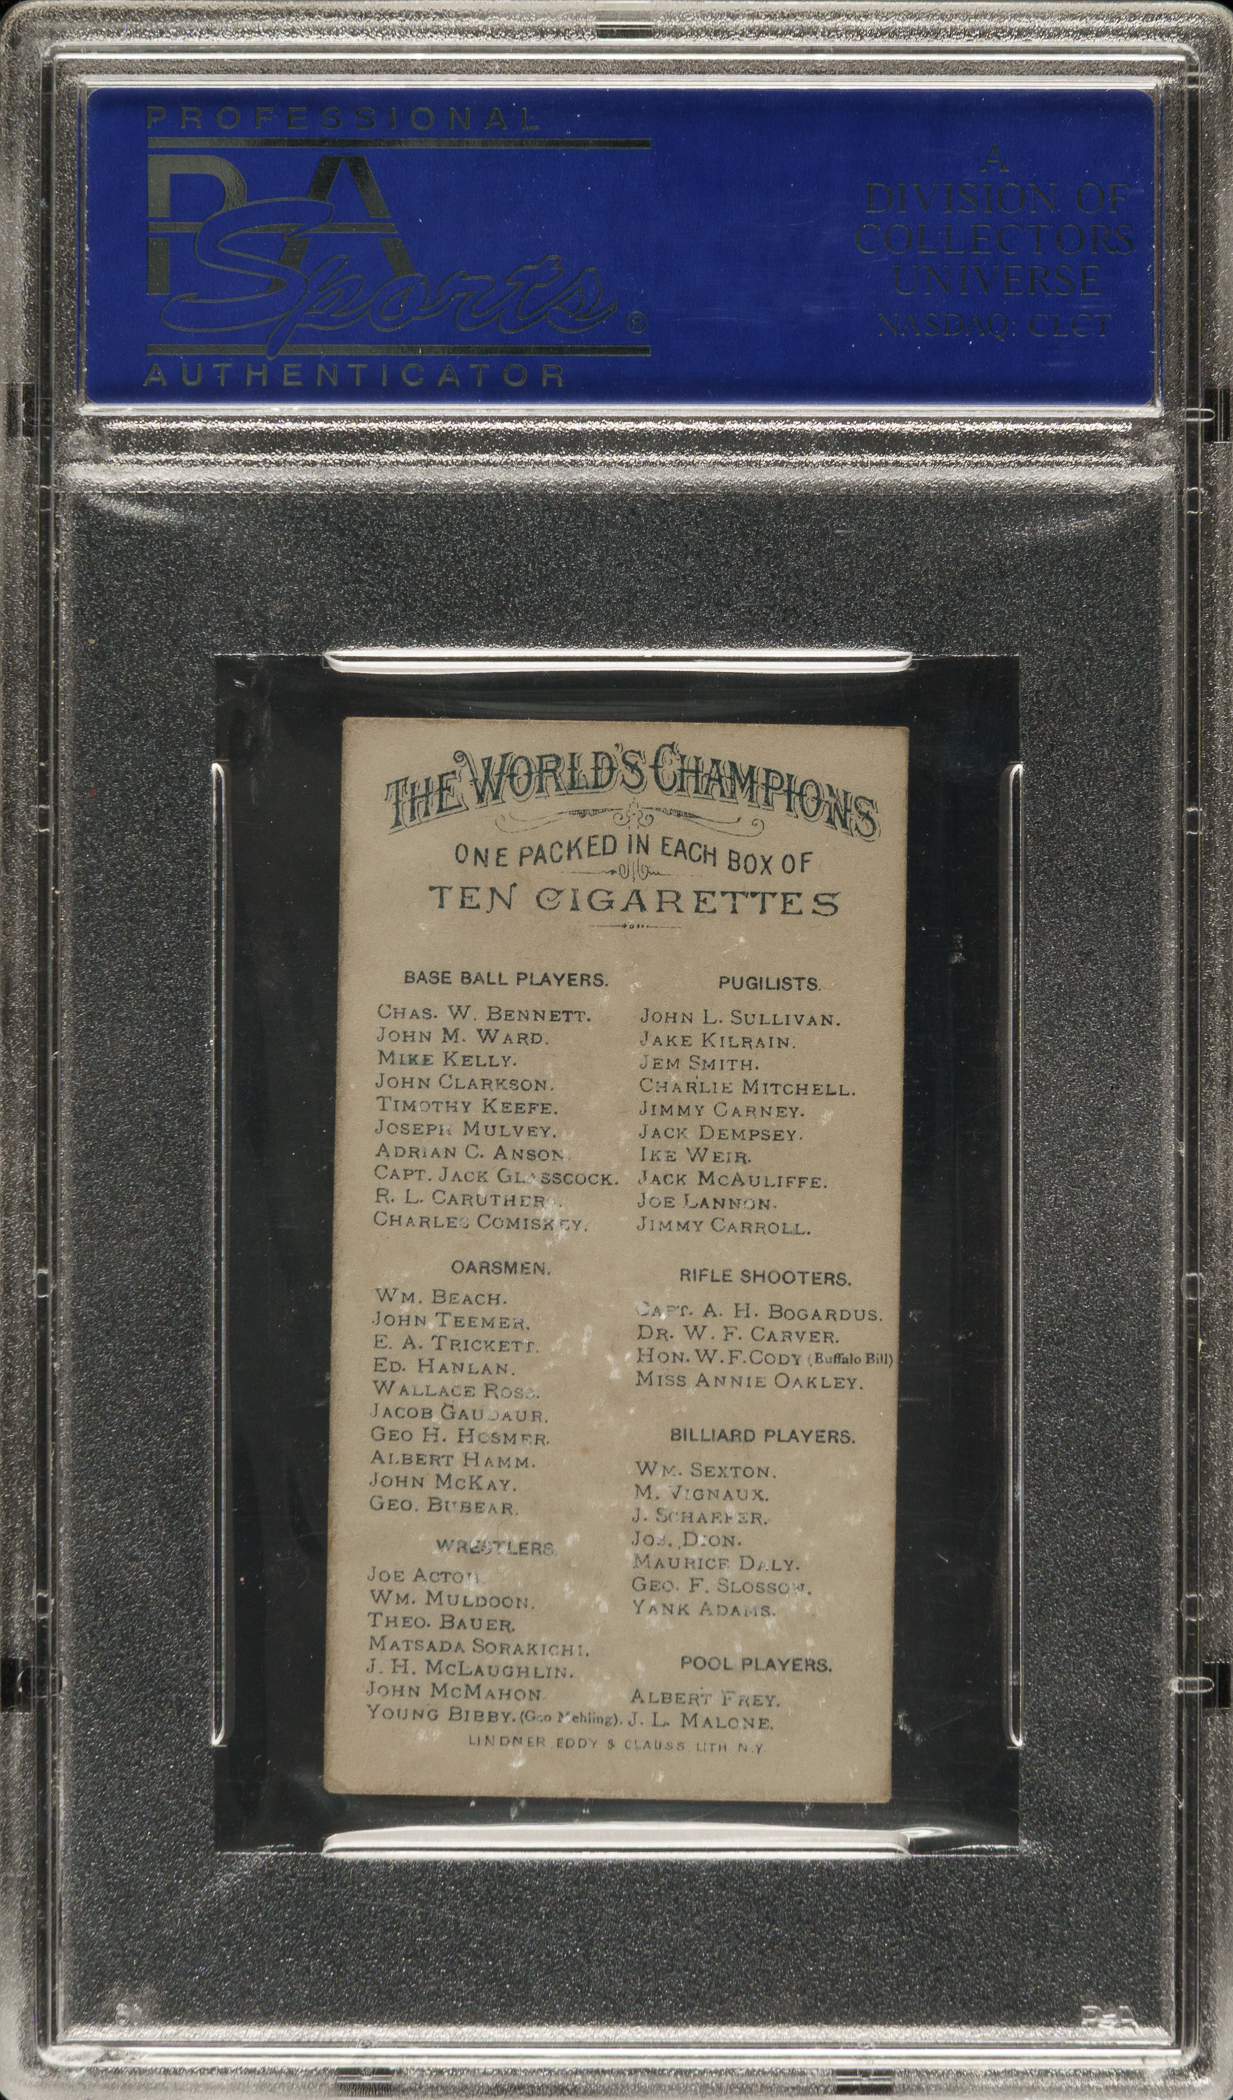 PROFESSIONAL
PSA
Sports®
AUTHENTICATOR
A
DIVISION OF
COLLECTORS
UNIVERSE
NASDAQ: CLCT
THE WORLD'S CHAMPIONS
ONE PACKED IN EACH BOX OF
TEN CIGARETTES
BASE BALL PLAYERS.
CHAS. W. BENNETT.
JOHN M. WARD.
MIKE KELLY.
JOHN CLARKSON.
TIMOTHY KEEFE.
JOSEPH MULVEY.
ADRIAN C. ANSON.
CAPT. JACK GLASSCOCK.
R. L. CARUTHERS.
CHARLES COMISKEY.
OARSMEN.
WM. BEACH.
JOHN TEEMER.
E. A. TRICKETT.
ED. HANLAN.
WALLACE ROSS.
JACOB GAUDAUR.
GEO H. HOSMER.
ALBERT HAMM.
JOHN MCKAY.
GEO. BUBEAR.
WRESTLERS.
JOE ACTON.
WM. MULDOON.
THEO. BAUER.
MATSADA SORAKICHI.
J. H. MCLAUGHLIN.
JOHN MCMAHON.
YOUNG BIBBY. (Geo Mehling).
PUGILISTS.
JOHN L. SULLIVAN.
JAKE KILRAIN.
JEM SMITH.
CHARLIE MITCHELL.
JIMMY CARNEY.
JACK DEMPSEY.
IKE WEIR.
JACK MCAULIFFE.
JOE LANNON.
JIMMY CARROLL.
RIFLE SHOOTERS.
CAPT. A. H. BOGARDUS.
DR. W. F. CARVER.
HON. W. F. CODY (Buffalo Bill)
MISS ANNIE OAKLEY.
BILLIARD PLAYERS.
WM. SEXTON.
M. VIGNAUX.
J. SCHAEFER.
JOS. DION.
MAURICE DALY.
GEO. F. SLOSSON.
YANK ADAMS.
POOL PLAYERS.
ALBERT FREY.
J. L. MALONE.
LINDNER, EDDY & CLAUSS, LITH. N.Y.
PSA